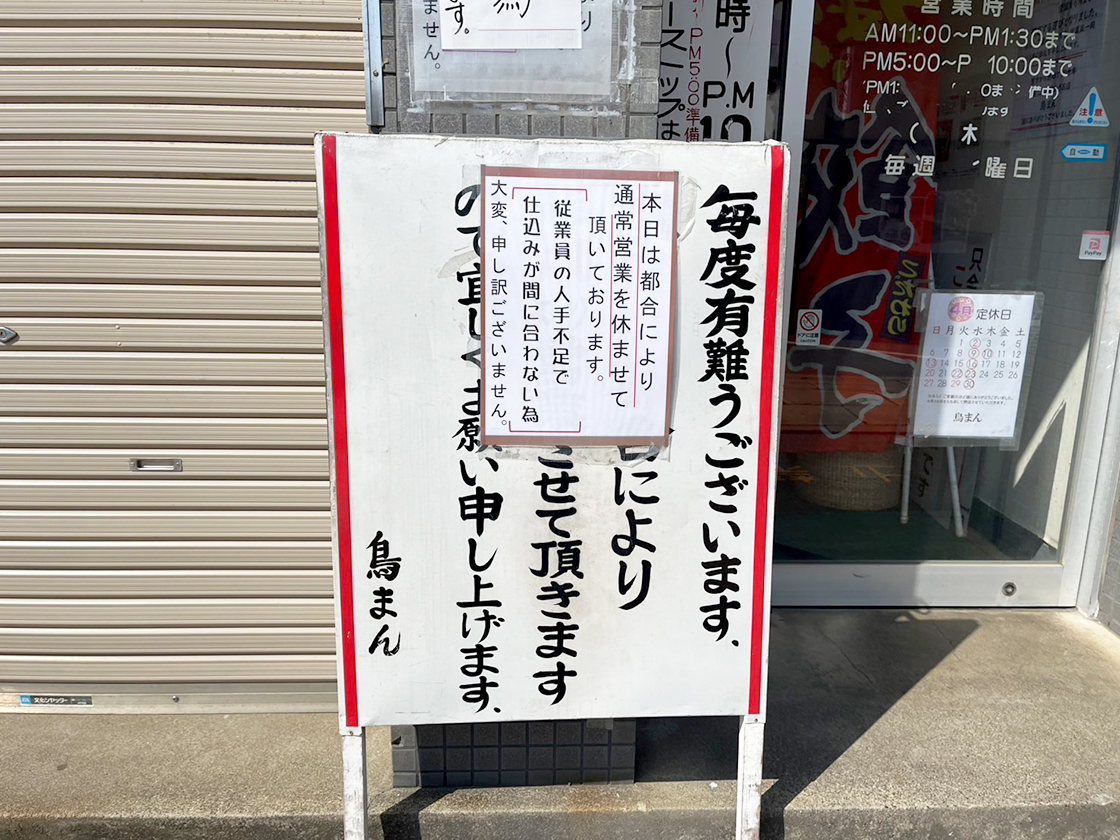 毎度有難うございます、
により
させて頂きます
ので宜しくお願い申し上げます、
鳥まん
本日は都合により
通常営業を休ませて
頂いております。
従業員の人手不足で
仕込みが間に合わない為
大変、申し訳ございません。
ません。
す。
時～P.M
10
ースストップま
PM5:00準備
営業時間
AM11:00～PM1:30まで
PM5:00～P 10:00まで
木
毎週
曜日
注意
自動
PayPay
ドアに注意
こだわり
餃子
4月
定休日
日月火水木金土
1 2 3 4 5
6 7 8 9 10 11 12
13 14 15 16 17 18 19
20 21 22 23 24 25 26
27 28 29 30
鳥まん
文化シヤッター